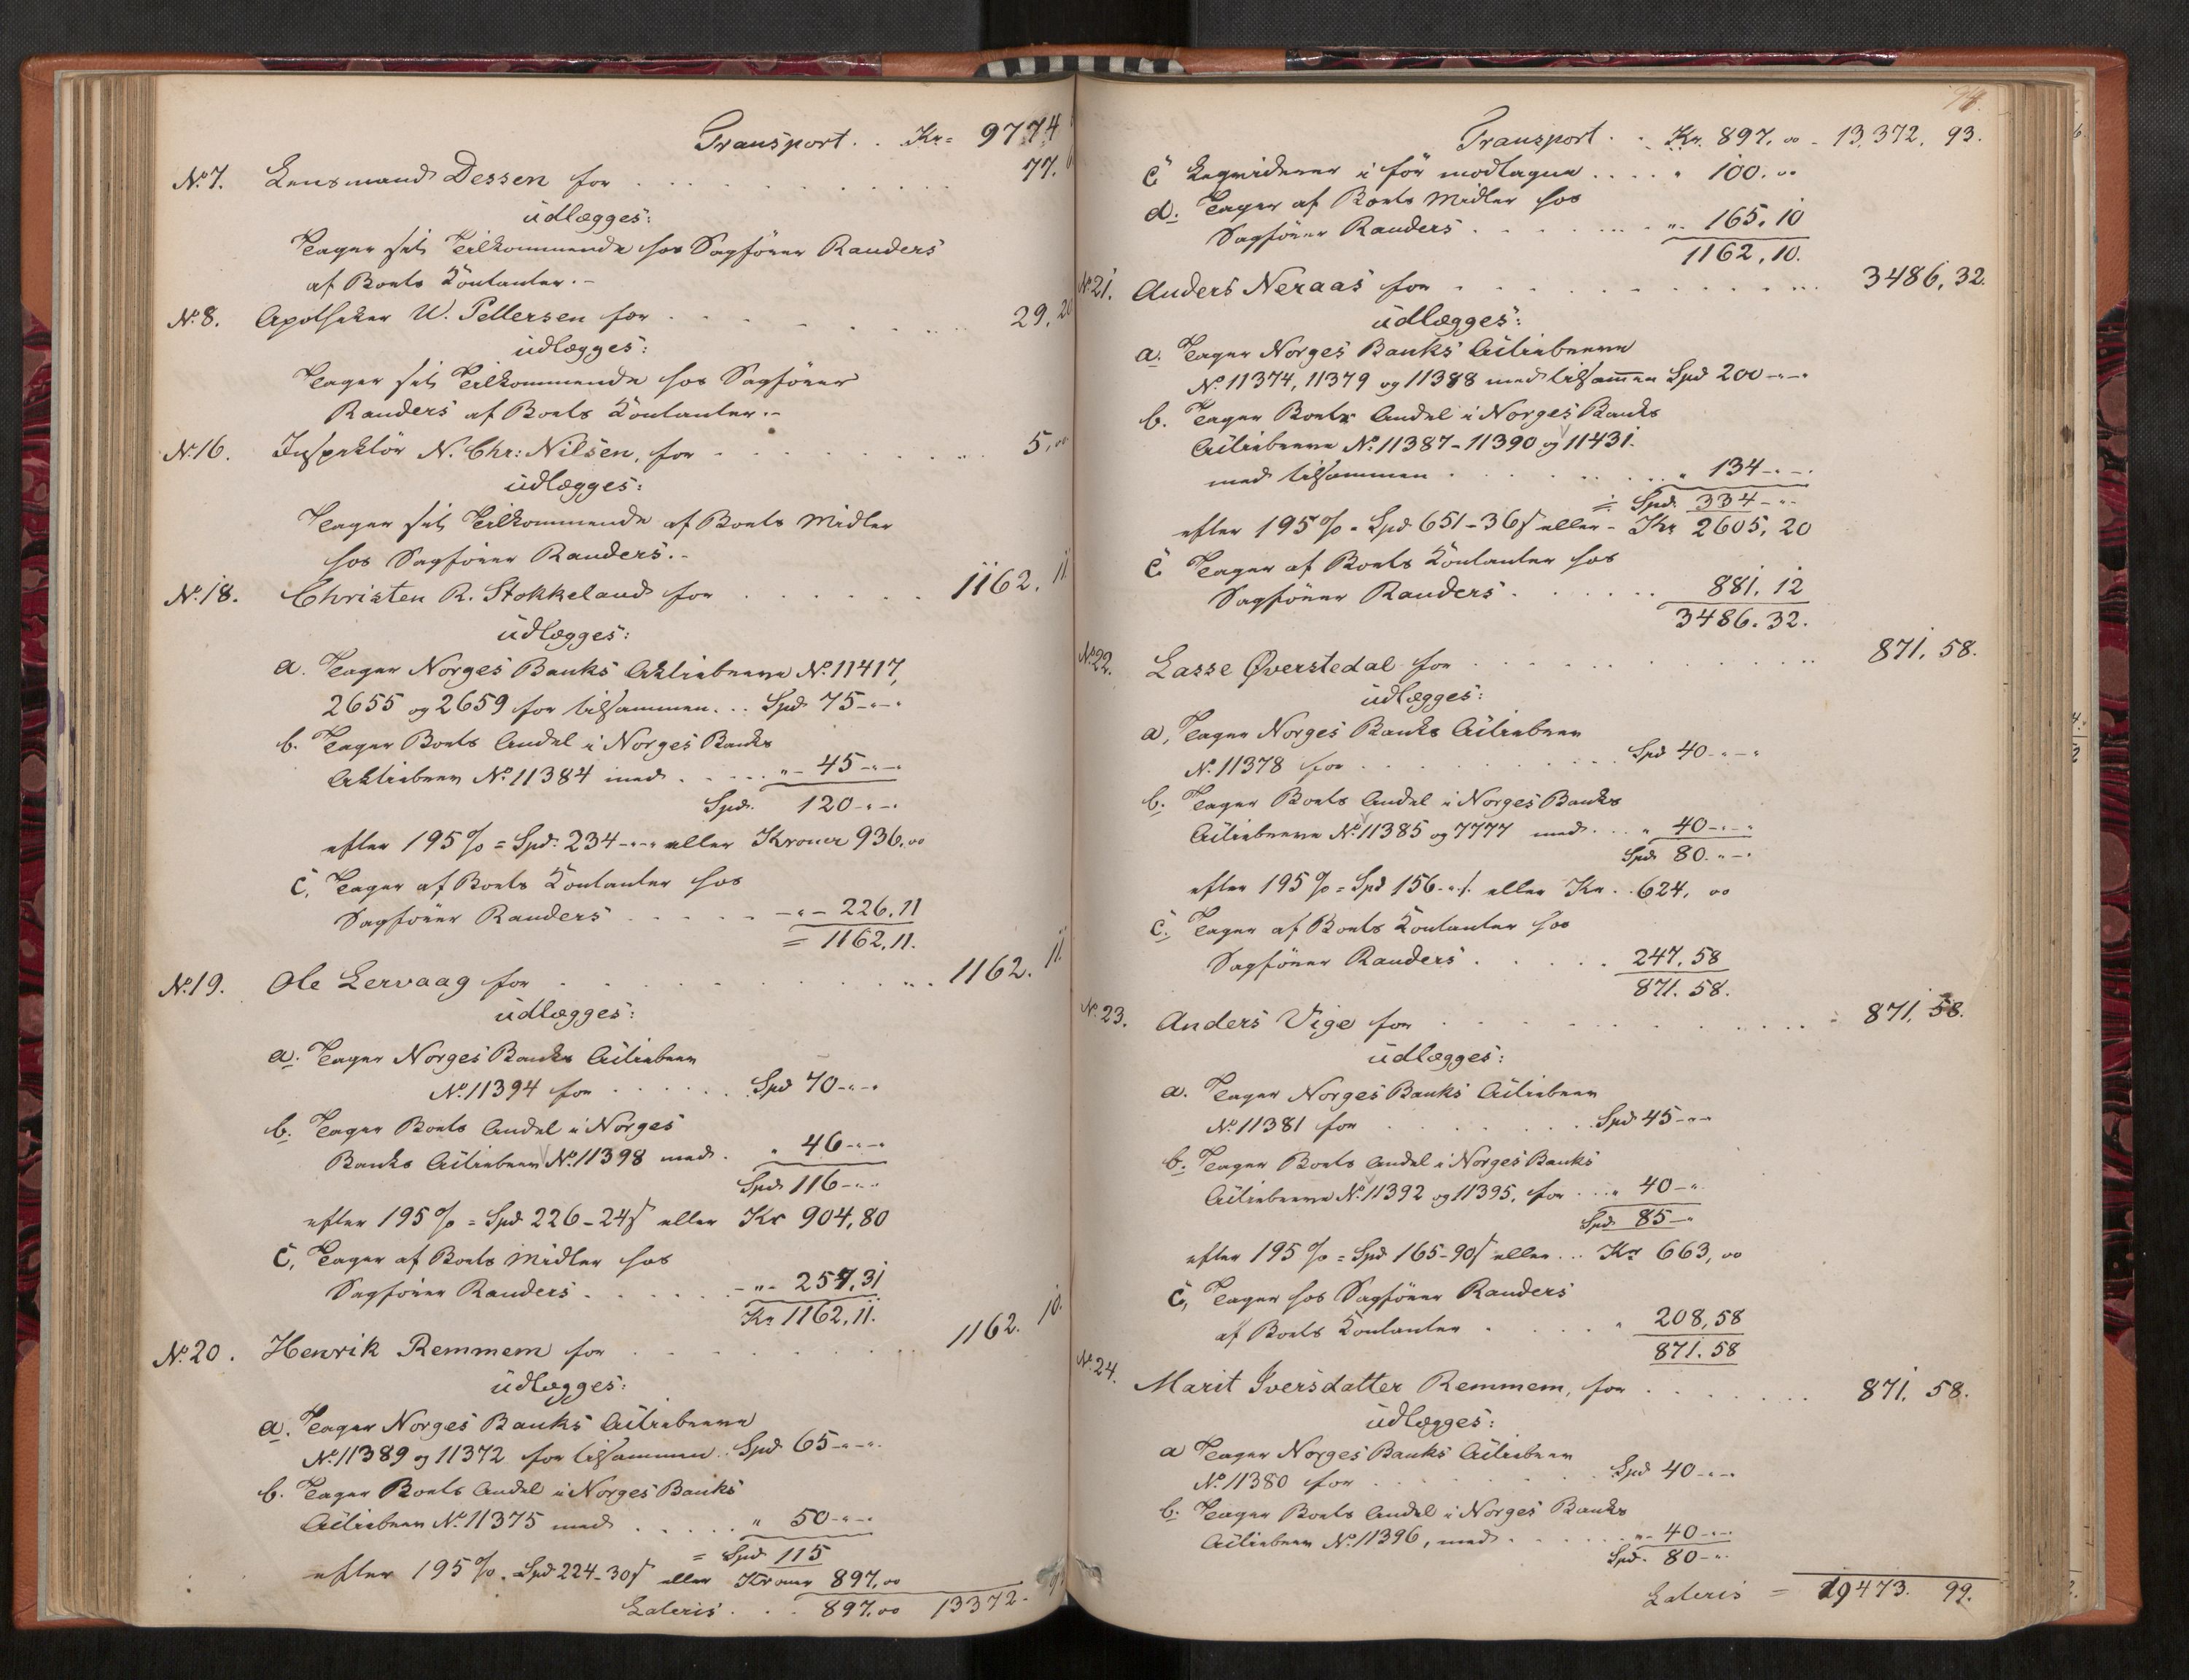 Transport . . Kr= 9774
No. 7. Lensmand Dessen for . . . 77.
udlægges:
Tager sit Tilkommende hos Sagfører Randers
af Boets Contanter.-
No. 8. Apotheker W. Pettersen for . . . 29, 20
udlægges:
Tager sit Tilkommende hos Sagfører
Randers af Boets Contanter.-
No. 16. Inspektör N. Chr: Nilsen, for . . . 5,00
udlægges:
Tager sit Tilkommende af Boets Midler
hos Sagfører Randers.-
No. 18. Christen R. Stokkeland for . . . 1162. 11.
udlægges:
a. Tager Norges Banks Aktiebreve No. 11417,
2655 og 2659 for tilsammen... Spd 75-"-"
b. Tager Boets Andel i Norges Banks
Aktiebrev No. 11384 med . . . "- 45-"-"
Spd. 120-"-"
efter 195 % = Spd: 234-"-" eller Kroner 936,00
c, Tager af Boets Contanter hos
Sagfører Randers . . . -"- 226.11
= 1162.11.
No. 19. Ole Lervaag for . . . 1162. 11.
udlægges:
a. Tager Norges Banks Actiebrev
No. 11394 for . . . Spd 70-"-"
b. Tager Boets Andel i Norges
Banks Actiebrev No. 11398 med . " 46-"-"
Spd 116-"-"
efter 195 % = Spd 226-24ß eller Kr 904,80
c, Tager af Boets Midler hos
Sagfører Randers . . . -"- 257,31
Kr 1162,11.
No. 20. Henrik Remmem for . . . 1162. 10.
udlægges:
a. Tager Norges Banks Actiebreve
No. 11389 og 11372 for tilsammen . Spd 65-"-"
b. Tager Boets Andel i Norges Banks
Actiebrev No. 11375 med . . . " 50-"-"
= Spd 115
efter 195 %. = Spd 224-30ß eller Kroner 897,00
Lateris . . . 897.00 13372.
94.
Transport . . Kr. 897. 00 - 13,372. 93.
c. Liqviderer i før modtagne . . . " 100. "
d. Tager af Boets Midler hos
Sagfører Randers . . . "- 165. 10
1162, 10.
No. 21. Anders Neraas for . . . 3486, 32.
udlægges:
a. Tager Norges Banks Actiebreve
No. 11374, 11379 og 11388 med tilsammen Spd 200-"-"
b. Tager Boets Andel i Norges Banks
Actiebreve No. 11387-11390 og 11431.
med tilsammen . . . " 134-"-"
÷ Spd. 334-"-
efter 195 % = Spd 651-36ß eller - Kr 2605, 20
c. Tager af Boets Contanter hos
Sagfører Randers . . . 881. 12
3486. 32.
No. 22. Lasse Øverstedal for . . . 871. 58.
udlægges:
a, Tager Norges Banks Actiebrev
No. 11378 for . . . Spd 40-"-"
b. Tager Boets Andel i Norges Banks
Actiebreve No. 11385 og 7777 med . . " 40-"-"
Spd 80. "-"
efter 195 % = Spd 156-"ß. eller Kr . . 624, 00
c. Tager af Boets Contanter hos
Sagfører Randers . . . 247. 58
871. 58.
No. 23. Anders Vige for . . . 871. 58.
udlægges:
a. Tager Norges Banks Actiebrev
No. 11381 for . . . Spd 45-"-
b. Tager Boets Andel i Norges Banks
Actiebreve No. 11392 og 11395, for . . " 40-"
Spd. 85-"
efter 195 % = Spd 165-90ß eller . . . Kr 663, 00
c, Tager hos Sagfører Randers
af Boets Contanter . . . " 208, 58
871. 58
No. 24. Marit Iversdatter Remmem, for . . . 871. 58.
udlægges:
a Tager Norges Banks Actiebrev
No. 11380 for . . . Spd 40-"-
b. Tager Boets Andel i Norges Banks
Actiebrev No. 11396, med . . . "- 40-"-
Spd. 80-"-
Lateris = 19473. 99.